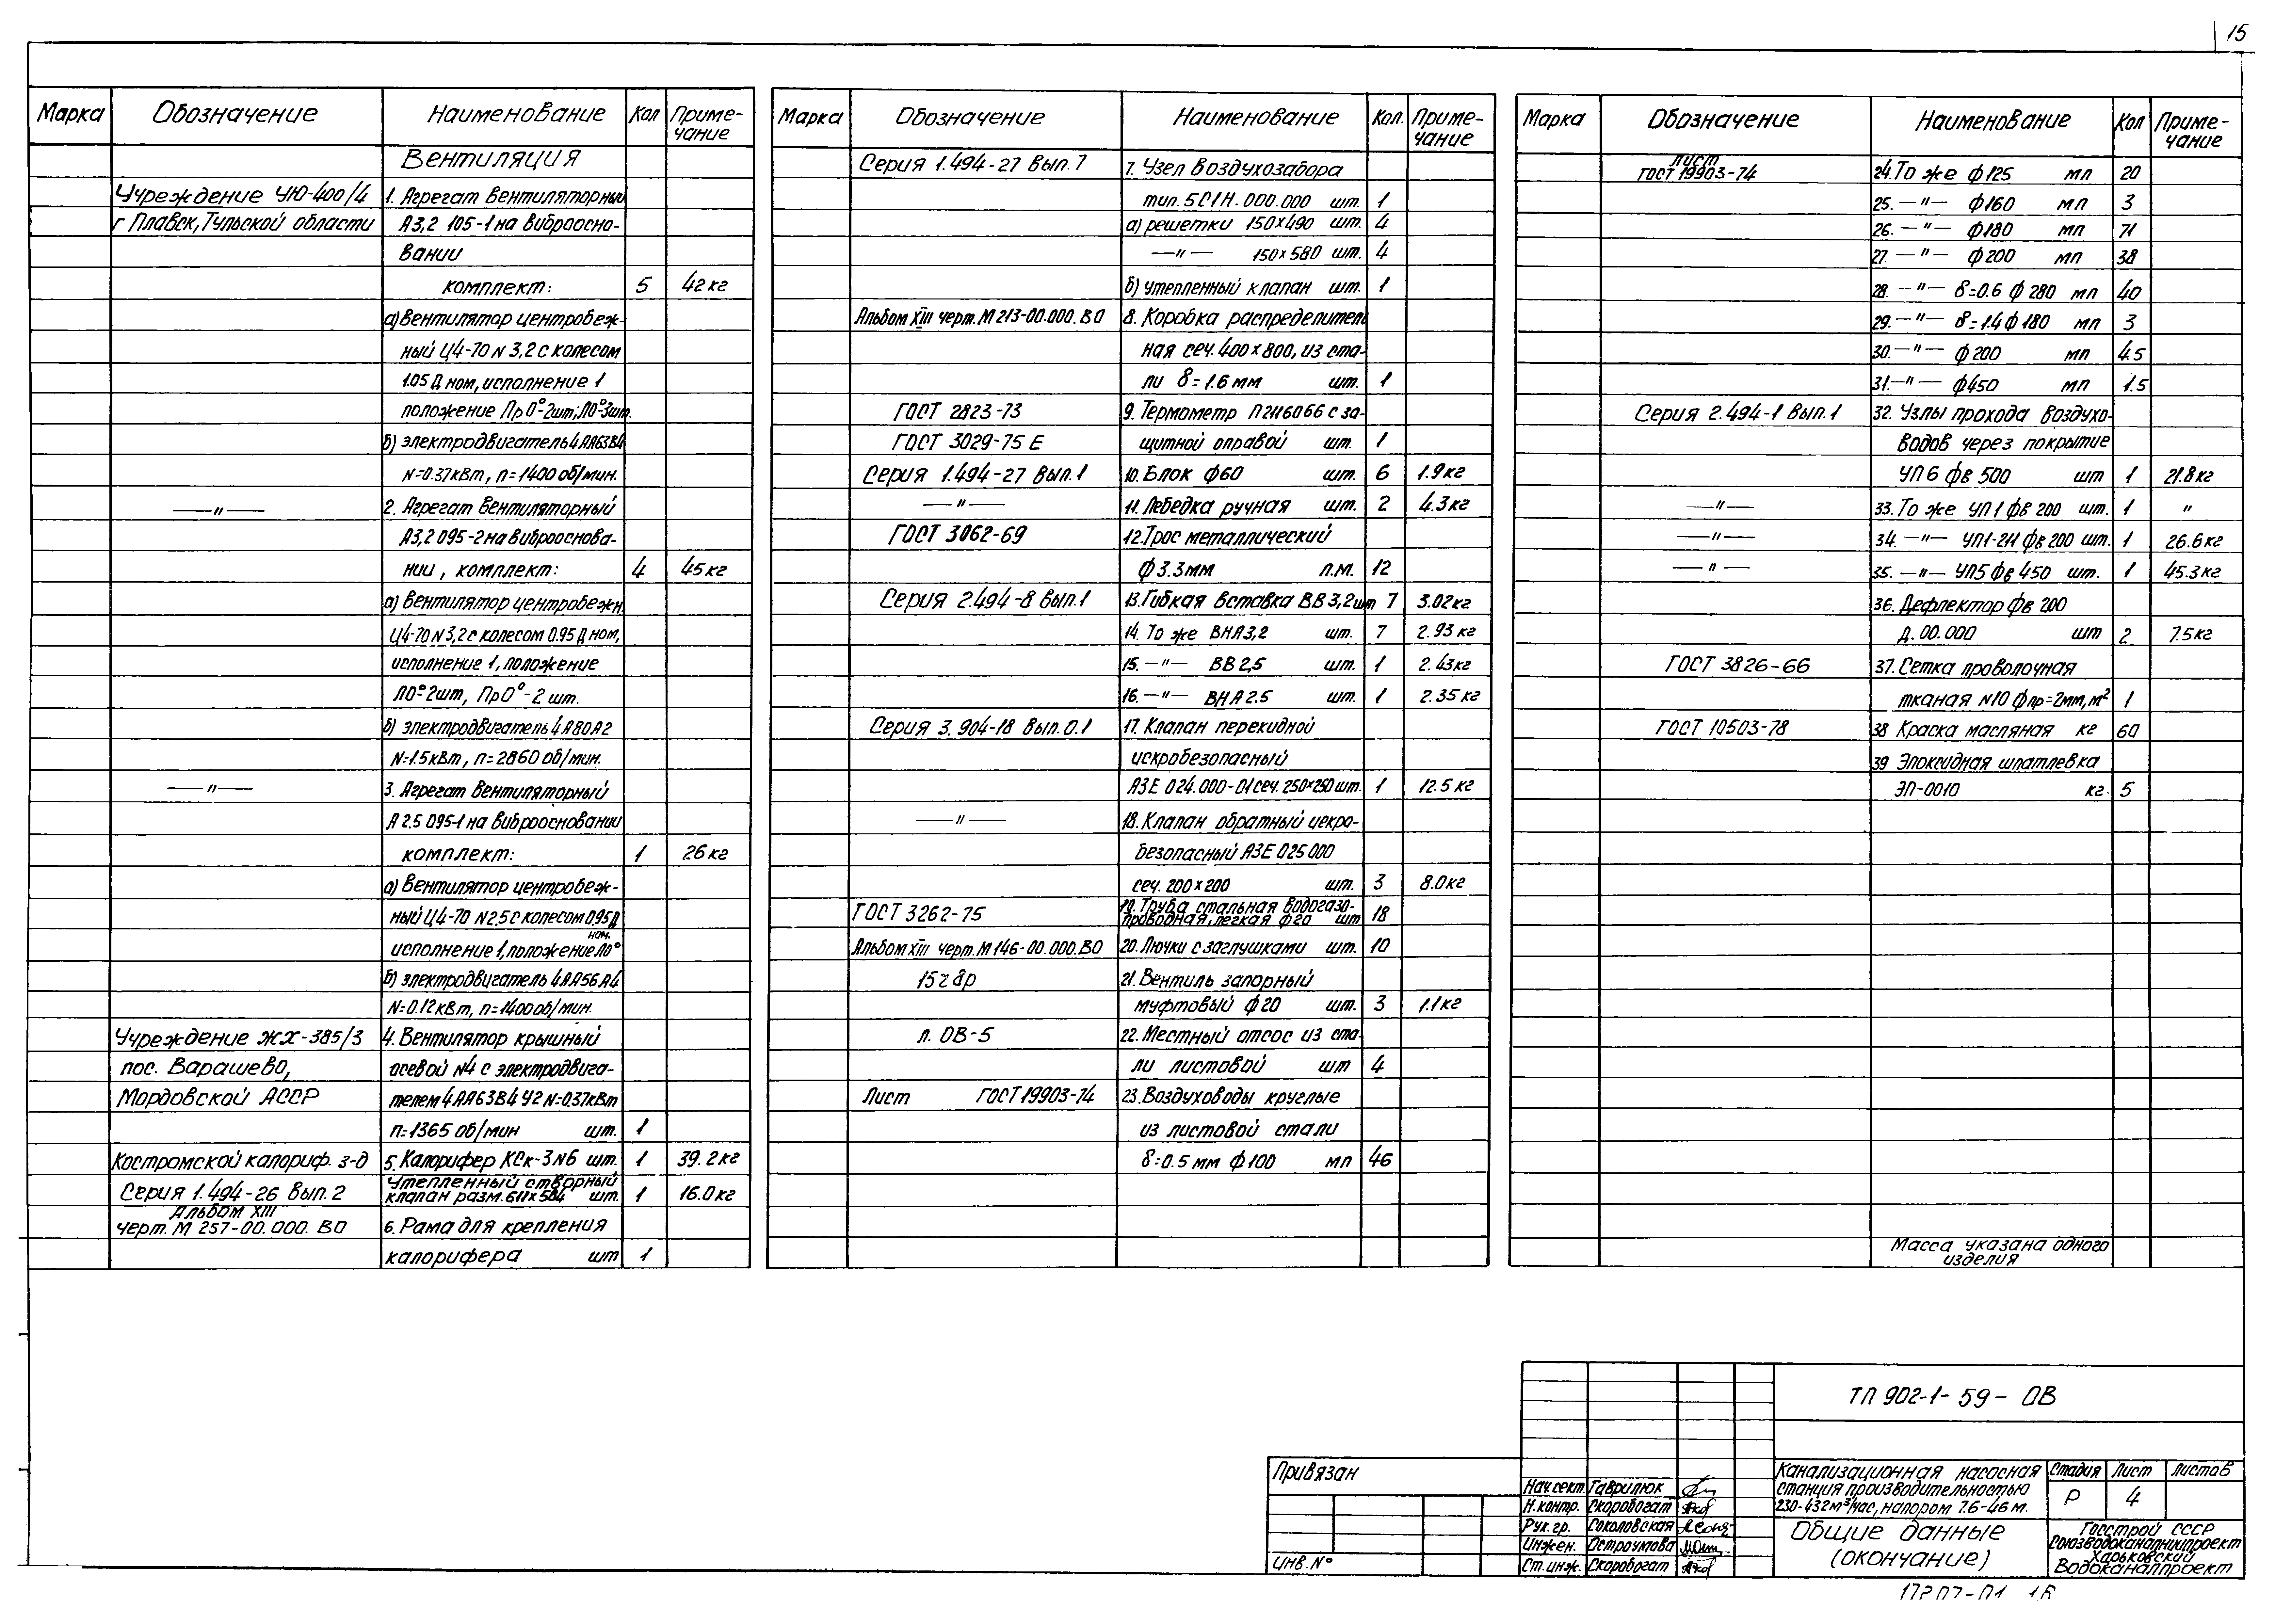 15
Марка Обозначение Наименование Кол Приме-
чание
Вентиляция
Учреждение УЮ-400/4 1. Агрегат вентиляторный
г Плавск, Тульской области А3,2 105-1 на виброосно-
вании
комплект: 5 42 кг
а) Вентилятор центробеж-
ный Ц4-70 N 3,2 с колесом
1.05 Д ном, исполнение 1
положение Пр0°-2шт; Л0°-3шт.
б) электродвигатель 4АА63В4
N=0.37кВт, n=1400 об/мин.
—"— 2. Агрегат вентиляторный
А3,2 095-2 на виброоснова-
нии, комплект: 4 45 кг
а) Вентилятор центробежн.
Ц4-70 N3,2 с колесом 0.95 Д ном,
исполнение 1, положение
Л0°-2шт, Пр0°-2 шт.
б) электродвигатель 4А80А2
N=1.5кВт, n=2860 об/мин.
—"— 3. Агрегат вентиляторный
А 2.5 095-1 на виброосновании
комплект: 1 26 кг
а) Вентилятор центробеж-
ный Ц4-70 N2.5 с колесом 0.95 Д
ном.
исполнение 1, положение Л0°
б) электродвигатель 4АА56А4
N=0.12кВт, n=1400 об/мин.
Учреждение ЖХ-385/3 4. Вентилятор крышный
пос. Варашево, осевой N4 с электродвига-
Мордовской АССР телем 4АА63В4 У2 N=0.37кВт
n=1365 об/мин шт. 1
Костромской калориф. з-д 5. Калорифер КСк-3 N6 шт. 1 39.2 кг
Утепленный створный
Серия 1.494-26 вып. 2 клапан разм. 611х584 шт. 1 16.0 кг
Альбом XIII
черт. М 257-00.000. ВО 6. Рама для крепления
калорифера шт 1
Марка Обозначение Наименование Кол. Приме-
чание
Серия 1.494-27 вып. 7 7. Узел воздухозабора
тип. 5С1Н.000.000 шт. 1
а) решетки 150х490 шт. 4
—"— 150х580 шт. 4
б) утепленный клапан шт. 1
Альбом XIII черт. М 213-00.000. ВО 8. Коробка распределитель
ная сеч. 400х800, из ста-
ли δ=1.6 мм шт. 1
ГОСТ 2823-73 9. Термометр П 2 1 160 66 с за-
ГОСТ 3029-75 Е щитной оправой шт. 1
Серия 1.494-27 вып. 1 10. Блок ф60 шт. 6 1.9 кг
—"— 11. Лебедка ручная шт. 2 4.3 кг
ГОСТ 3062-69 12. Трос металлический
ф 3.3мм п.м. 12
Серия 2.494-8 вып. 1 13. Гибкая вставка ВВ 3,2 шт 7 3.02 кг
14. То же ВНА3,2 шт. 7 2.93 кг
15. —"— ВВ 2,5 шт. 1 2.43 кг
16. —"— ВНА 2.5 шт. 1 2.35 кг
Серия 3. 904-18 вып. 0.1 17. Клапан перекидной
искробезопасный
АЗЕ 024.000-01 сеч. 250х250 шт. 1 12.5 кг
—"— 18. Клапан обратный искро-
безопасный АЗЕ 025 000
сеч. 200х200 шт. 3 8.0 кг
19. Труба стальная водогазо-
ГОСТ 3262-75 проводная, легкая ф 20 шт 18
Альбом XIII черт. М 146-00.000. ВО 20. Лючки с заглушками шт. 10
15ч 8р 21. Вентиль запорный
муфтовый ф 20 шт. 3 1.1 кг
л. ОВ-5 22. Местный отсос из ста-
ли листовой шт 4
Лист ГОСТ 19903-74 23. Воздуховоды круглые
из листовой стали
δ=0.5 мм ф100 мп 46
Марка Обозначение Наименование Кол Приме-
чание
Лист
ГОСТ 19903-74 24. То же ф 125 мп 20
25. —"— ф160 мп 3
26. —"— ф180 мп 71
27. —"— ф 200 мп 38
28. —"— δ=0.6 ф 280 мп 40
29. —"— δ=1.4 ф 180 мп 3
30. —"— ф 200 мп 4.5
31. —"— ф450 мп 1.5
Серия 2.494-1 вып. 1 32. Узлы прохода воздухо-
водов через покрытие
УП 6 фв 500 шт 1 21.8 кг
—"— 33. То же УП 1 фв 200 шт. 1 "
—"— 34. —"— УП1-2И фв 200 шт. 1 26.6 кг
—"— 35. —"— УП5 фв 450 шт. 1 45.3 кг
36. Дефлектор фв 200
Д. 00.000 шт 2 7.5 кг
ГОСТ 3826-66 37. Сетка проволочная
тканая N10 фпр=2мм, м² 1
ГОСТ 10503-78 38 Краска масляная кг 60
39 Эпоксидная шпатлевка
ЭП-0010 кг. 5
Масса указана одного
изделия
ТП 902-1-59-ОВ
Привязан
Инв. N°
Нач. сект. Гаврилюк
Н. контр. Скоробогат
Рук. гр. Соколовская
Инжен. Остроумова
Ст. инж. Скоробогат
Канализационная насосная
станция производительностью
230-432 м³/час, напором 7.6-46 м.
Стадия Лист Листов
Р 4
Общие данные
(окончание)
Госстрой СССР
Союзводоканалниипроект
Харьковский
Водоканалпроект
17207-01 16